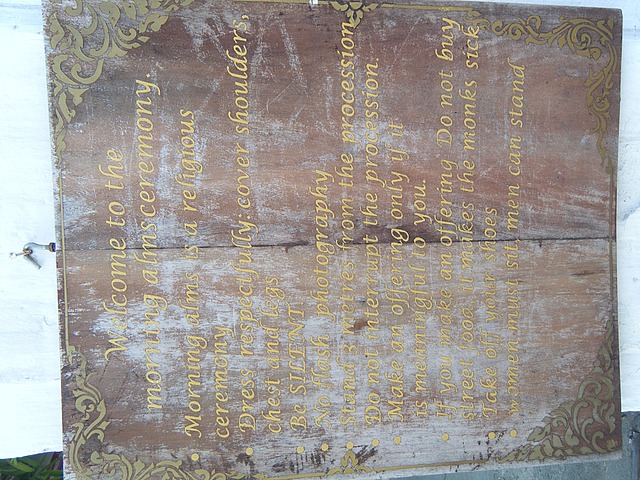 Welcome to the
morning almsceremony.
• Morning alms is a religious
ceremony
• Dress respectfully: cover shoulders,
chest and legs
• Be SILENT
• No flash photography
• Stand 3 metres from the procession
• Do not interrupt the procession.
• Make an offering only if it
is meaningful to you.
• If you make an offering Do not buy
street food it makes the monks sick
• Take off your shoes
• women must sit, men can stand